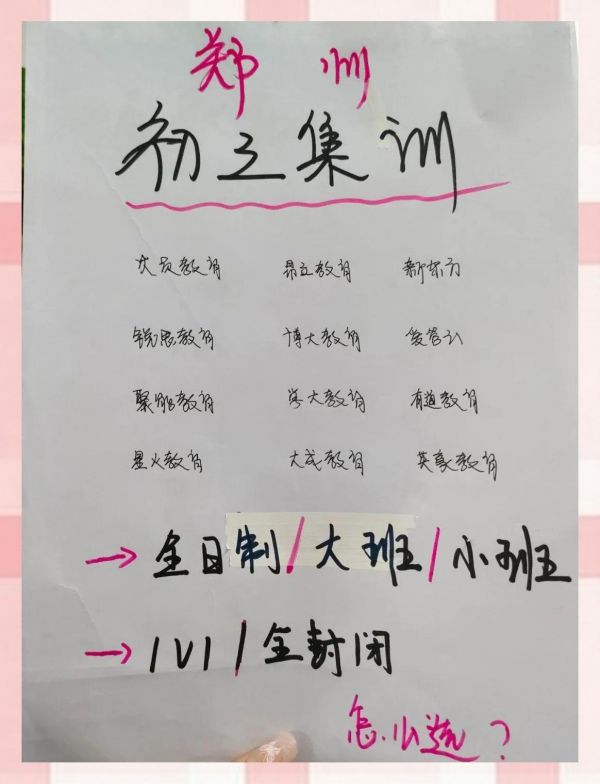 郑州
初三集训
教育 昂立教育 新东方
锐思教育 博大教育
聚能教育 学大教育 有道教育
星火教育 大成教育 英豪教育
→ 全日制/大班/小班
→ 1V1/全封闭
怎么选?